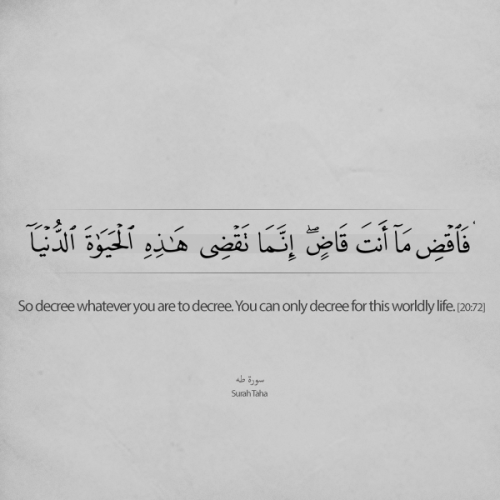 فَٱقْضِ مَآ أَنتَ قَاضٍ ۖ إِنَّمَا تَقْضِى هَـٰذِهِ ٱلْحَيَوٰةَ ٱلدُّنْيَآ
So decree whatever you are to decree. You can only decree for this worldly life. [20:72]
سورة طه
Surah Taha